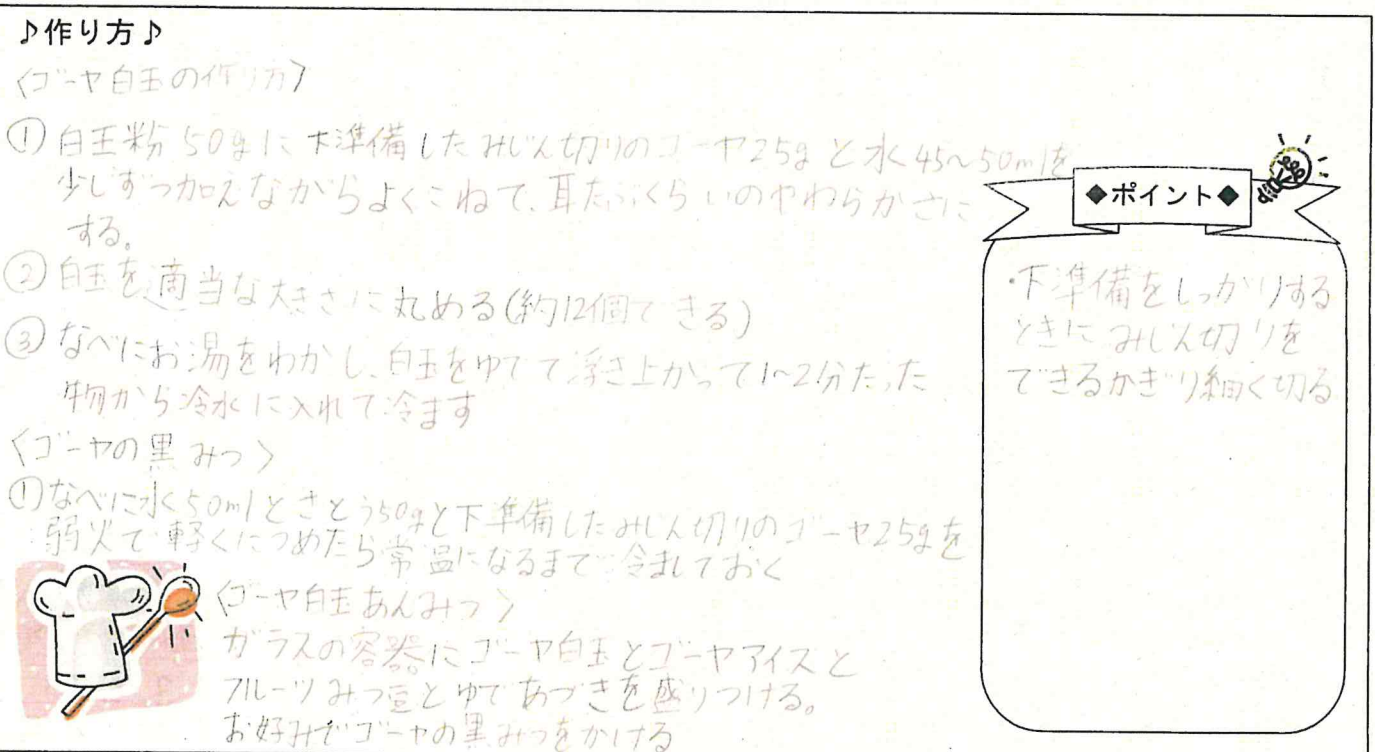 ♪作り方♪
〈ゴーヤ白玉の作り方〉
①白玉粉50gに下準備したみじん切りのゴーヤ25gと水45〜50mlを
少しずつ加えながらよくこねて、耳たぶくらいのやわらかさに
する。
②白玉を適当な大きさに丸める(約12個できる)
③なべにお湯をわかし、白玉をゆでて浮き上がって1〜2分たった
物から冷水に入れて冷ます
〈ゴーヤの黒みつ〉
①なべに水50mlとさとう50gと下準備したみじん切りのゴーヤ25gを
弱火で軽くにつめたら常温になるまで冷ましておく
〈ゴーヤ白玉あんみつ〉
ガラスの容器にゴーヤ白玉とゴーヤアイスと
フルーツみつ豆とゆであづきを盛りつける。
お好みでゴーヤの黒みつをかける
◆ポイント◆
・下準備をしっかりする
ときにみじん切りを
できるかぎり細く切る